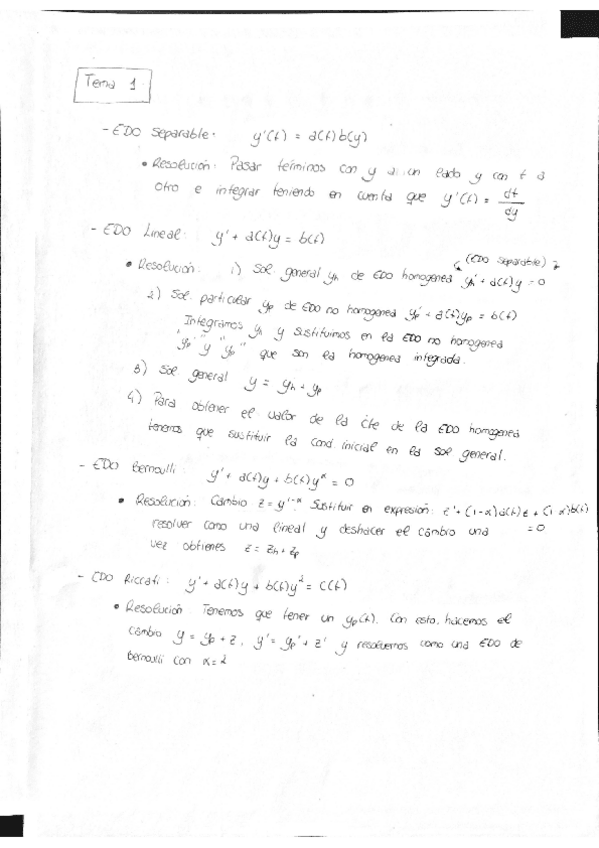 Tema 1
- EDO Separable: y'(t) = a(t)b(y)
• Resolución: Pasar términos con y a un lado y con t a
otro e integrar teniendo en cuenta que y'(t) = dt/dy
- EDO Lineal: y' + a(t)y = b(t)
(EDO separable)
• Resolución: 1) Sol. general yh de EDO homogenea yh' + a(t)y = 0
2) Sol. particular yp de EDO no homogenea yp' + a(t)yp = b(t)
Integramos yh y sustituimos en la EDO no homogenea
"yp'" y "yp" que son la homogenea integrada.
3) Sol general y = yh + yp
4) Para obtener el valor de la cte de la EDO homogenea
tenemos que sustituir la cond. inicial en la sol general.
- EDO Bernoulli: y' + a(t)y + b(t)y^α = 0
• Resolución: Cambio z = y^1-α. Sustituir en expresión: z' + (1-α)a(t)z + (1-α)b(t)
= 0
resolver como una lineal y deshacer el cambio una
vez obtienes z = zh + zp
- EDO Riccati: y' + a(t)y + b(t)y² = c(t)
• Resolución: Tenemos que tener un yp(t). Con esto, hacemos el
cambio y = yp + z, y' = yp' + z' y resolvemos como una EDO de
bernoulli con α = 2